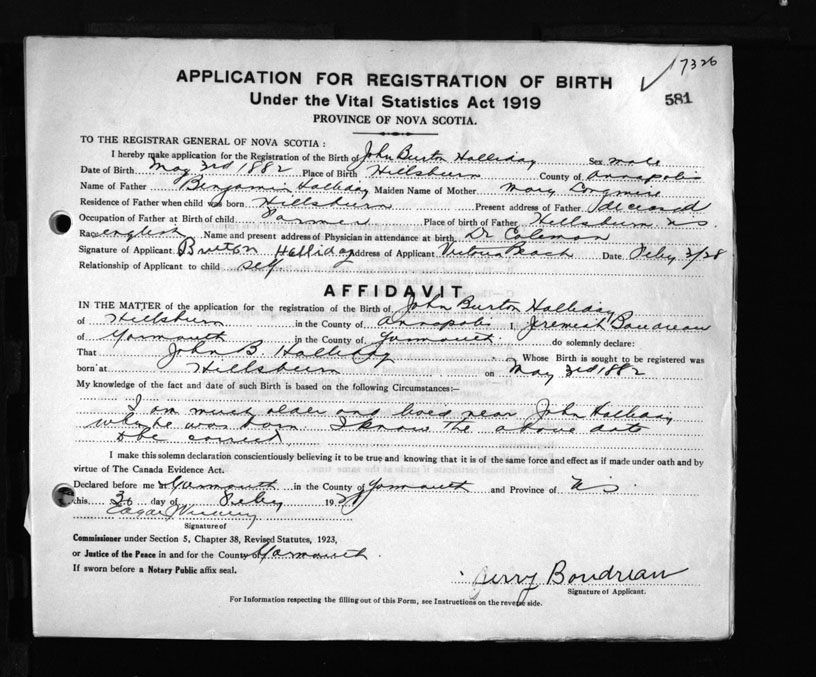 7326
APPLICATION FOR REGISTRATION OF BIRTH
581
Under the Vital Statistics Act 1919
PROVINCE OF NOVA SCOTIA.
TO THE REGISTRAR GENERAL OF NOVA SCOTIA :
I hereby make application for the Registration of the Birth of John Burton Halliday Sex male
Date of Birth May 3rd 1882 Place of Birth Hillsburn County of Annapolis
Name of Father Benjamin Halliday Maiden Name of Mother Mary Longmire
Residence of Father when child was born Hillsburn Present address of Father deceased
Occupation of Father at Birth of child Farmer Place of birth of Father Hillsburn NS
Race english Name and present address of Physician in attendance at birth Dr Coleman
Signature of Applicant Burton Halliday Address of Applicant Victoria Beach Date Feby 3/28
Relationship of Applicant to child self
AFFIDAVIT
IN THE MATTER of the application for the registration of the Birth of John Burton Halliday
of Hillsburn in the County of Annapolis I, Jeremiah Boudreau
of Yarmouth in the County of Yarmouth do solemnly declare:
That John B. Halliday Whose Birth is sought to be registered was
born at Hillsburn on May 3rd 1882
My knowledge of the fact and date of such Birth is based on the following Circumstances:—
I am much older and lived near John Halliday
when he was born. I know the above date
to be correct
I make this solemn declaration conscientiously believing it to be true and knowing that it is of the same force and effect as if made under oath and by
virtue of The Canada Evidence Act.
Declared before me at Yarmouth in the County of Yarmouth and Province of NS
this 3 day of Feby 1928
Signature of
Commissioner under Section 5, Chapter 38, Revised Statutes, 1923,
or Justice of the Peace in and for the County of Yarmouth.
If sworn before a Notary Public affix seal.
Jerry Boudreau
Signature of Applicant.
For Information respecting the filling out of this Form, see Instructions on the reverse side.